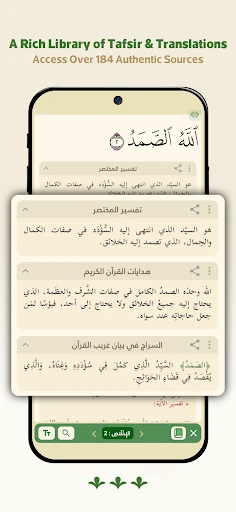 A Rich Library of Tafsir & Translations
Access Over 184 Authentic Sources
ٱللَّهُ ٱلصَّمَدُ ٢
تفسير المختصر
هو السيّد الذي انتهى إليه السُّؤدَد في صفات الكمال
تفسير المختصر
هو السيّد الذي انتهى إليه السُّؤدَد في صفات الكمال
والجمال، الذي تصمد إليه الخلائق.
هدايات القرآن الكريم
الله وحدَه الصمدُ الكامل في صفات الشَّرف والعظَمة، الذي
يحتاج إليه جميعُ الخلائق ولا يحتاج إلى أحد، فبؤسًا لمَن
جعل حاجاتِه عند سواه.
السراج في بيان غريب القرآن
﴿الصَّمَدُ﴾ السَّيِّدُ الَّذِي كَمُلَ فِي سُؤْدَدِهِ وَغِنَاهُ، وَالَّذِي
يُقْصَدُ فِي قَضَاءِ الحَوَائِجِ.
تفسير الآية:
Tт
الإخلاص : 2